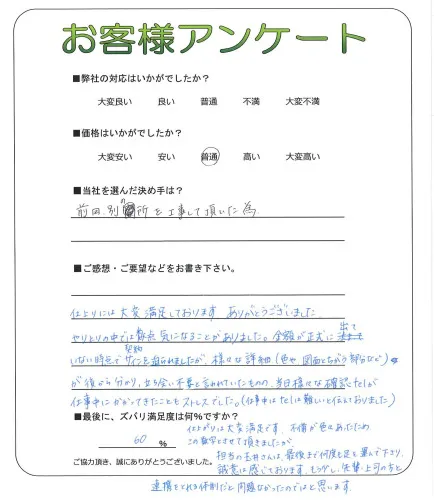 お客様アンケート
■弊社の対応はいかがでしたか？
大変良い 良い 普通 不満 大変不満
■価格はいかがでしたか？
大変安い 安い 普通 高い 大変高い
■当社を選んだ決め手は？
前回、別の所を工事して頂いた為
■ご感想・ご要望などをお書き下さい。
仕上りには大変満足しております。ありがとうございました。
やりとりの中では数点気になることがありました。金額が正式に出て
いない時点で契約サインを迫られましたが、様々な詳細（色や、図面とちがう部分など）
が後から分かり、立ち会い不要と言われていたものの、当日様々な確認telが
仕事中にかかってきたこともストレスでした。（仕事中はtelは難しいと伝えておりました）
■最後に、ズバリ満足度は何％ですか？
60 %
仕上がりは大変満足です。不備が色々あったため、
この数字とさせて頂きましたが、
ご協力頂き、誠にありがとうございました。
担当の玉井さんは、最後まで何度も足を運んで下さり、
誠意は感じております。もう少し、先輩・上司の方と
連携をとれる体制だと問題なかったのではと思います。